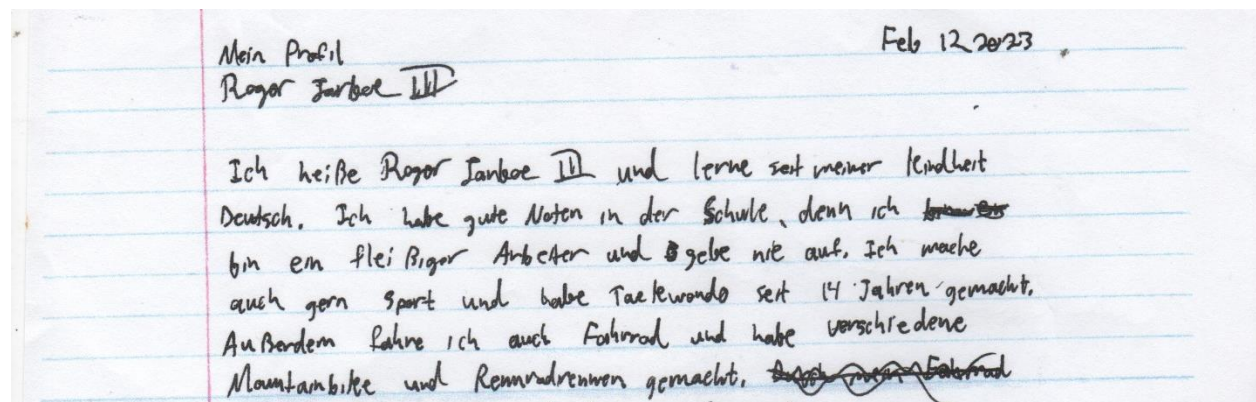 Mein Profil
Feb 12 2023
Roger Jarboe III
Ich heiße Roger Jarboe III und lerne seit meiner Kindheit
Deutsch. Ich habe gute Noten in der Schule, denn ich
bin ein fleißiger Arbeiter und gebe nie auf. Ich mache
auch gern Sport und habe Taekwondo seit 14 Jahren gemacht.
Außerdem fahre ich auch Fahrrad und habe verschiedene
Mountainbike und Rennradrennen gemacht.